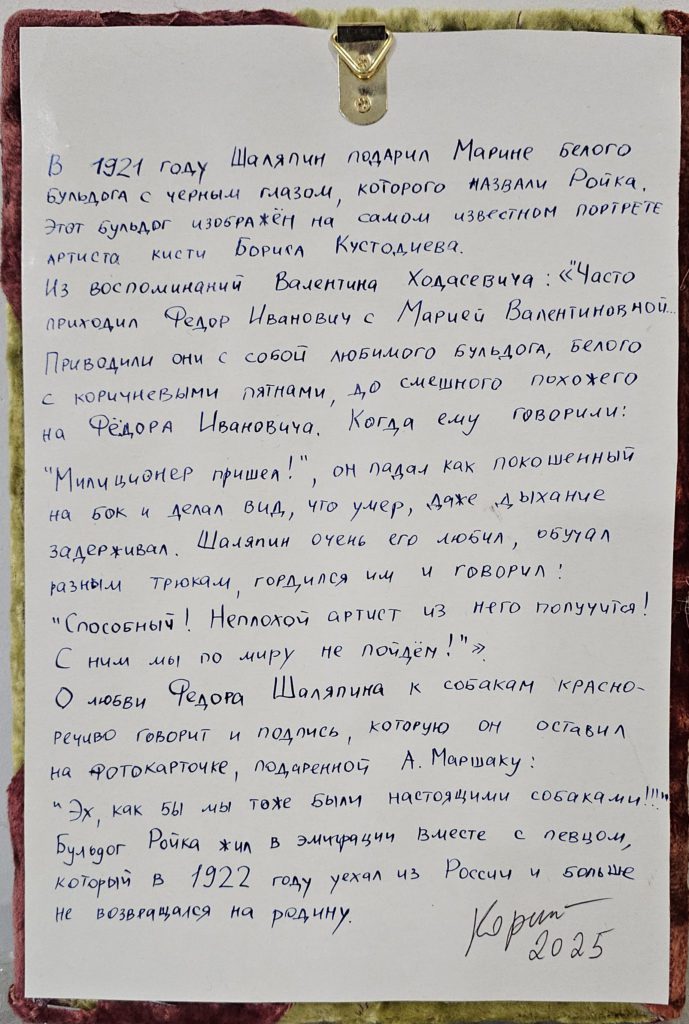 В 1921 году Шаляпин подарил Марине белого
бульдога с черным глазом, которого назвали Ройка.
Этот бульдог изображён на самом известном портрете
артиста кисти Бориса Кустодиева.
Из воспоминаний Валентина Ходасевича: «"Часто
приходил Федор Иванович с Марией Валентиновной...
Приводили они с собой любимого бульдога, белого
с коричневыми пятнами, до смешного похожего
на Фёдора Ивановича. Когда ему говорили:
"Милиционер пришел!", он падал как покошенный
на бок и делал вид, что умер, даже дыхание
задерживал. Шаляпин очень его любил, обучал
разным трюкам, гордился им и говорил:
"Способный! Неплохой артист из него получится!
С ним мы по миру не пойдём!"»
О любви Федора Шаляпина к собакам красно-
речиво говорит и подпись, которую он оставил
на фотокарточке, подаренной А. Маршаку:
"Эх, как бы мы тоже были настоящими собаками!!!"
Бульдог Ройка жил в эмиграции вместе с певцом,
который в 1922 году уехал из России и больше
не возвращался на родину.
2025